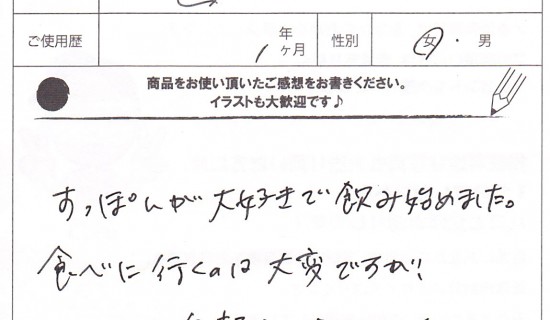 ご使用歴 1 年 ヶ月 性別 女 ・ 男
商品をお使い頂いたご感想をお書きください。
イラストも大歓迎です♪
すっぽんが大好きで飲み始めました。
食べに行くのは大変ですが!